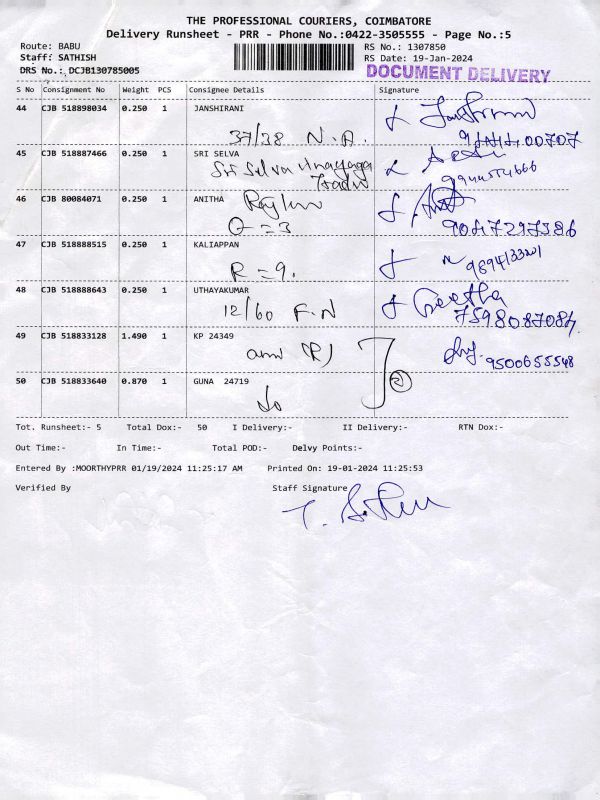 THE PROFESSIONAL COURIERS, COIMBATORE
Delivery Runsheet - PRR - Phone No.:0422-3505555 - Page No.:5
Route: BABU
Staff: SATHISH
DRS No.: DCJB130785005
RS No.: 1307850
RS Date: 19-Jan-2024
DOCUMENT DELIVERY
S No Consignment No Weight PCS Consignee Details Signature
44 CJB 518898034 0.250 1 JANSHIRANI
37/38 N.A.
45 CJB 518887466 0.250 1 SRI SELVA
Sri Selva Vinayaga
9944554666
46 CJB 80084071 0.250 1 ANITHA
Q = 3
9047297386
47 CJB 518888515 0.250 1 KALIAPPAN
R = 9.
48 CJB 518888643 0.250 1 UTHAYAKUMAR
12/60 F.N
Geetha
7598087084
49 CJB 518833128 1.490 1 KP 24349
9500655548
50 CJB 518833640 0.870 1 GUNA 24719
2
Tot. Runsheet:- 5 Total Dox:- 50 I Delivery:- II Delivery:- RTN Dox:-
Out Time:- In Time:- Total POD:- Delvy Points:-
Entered By :MOORTHYPRR 01/19/2024 11:25:17 AM Printed On: 19-01-2024 11:25:53
Verified By Staff Signature